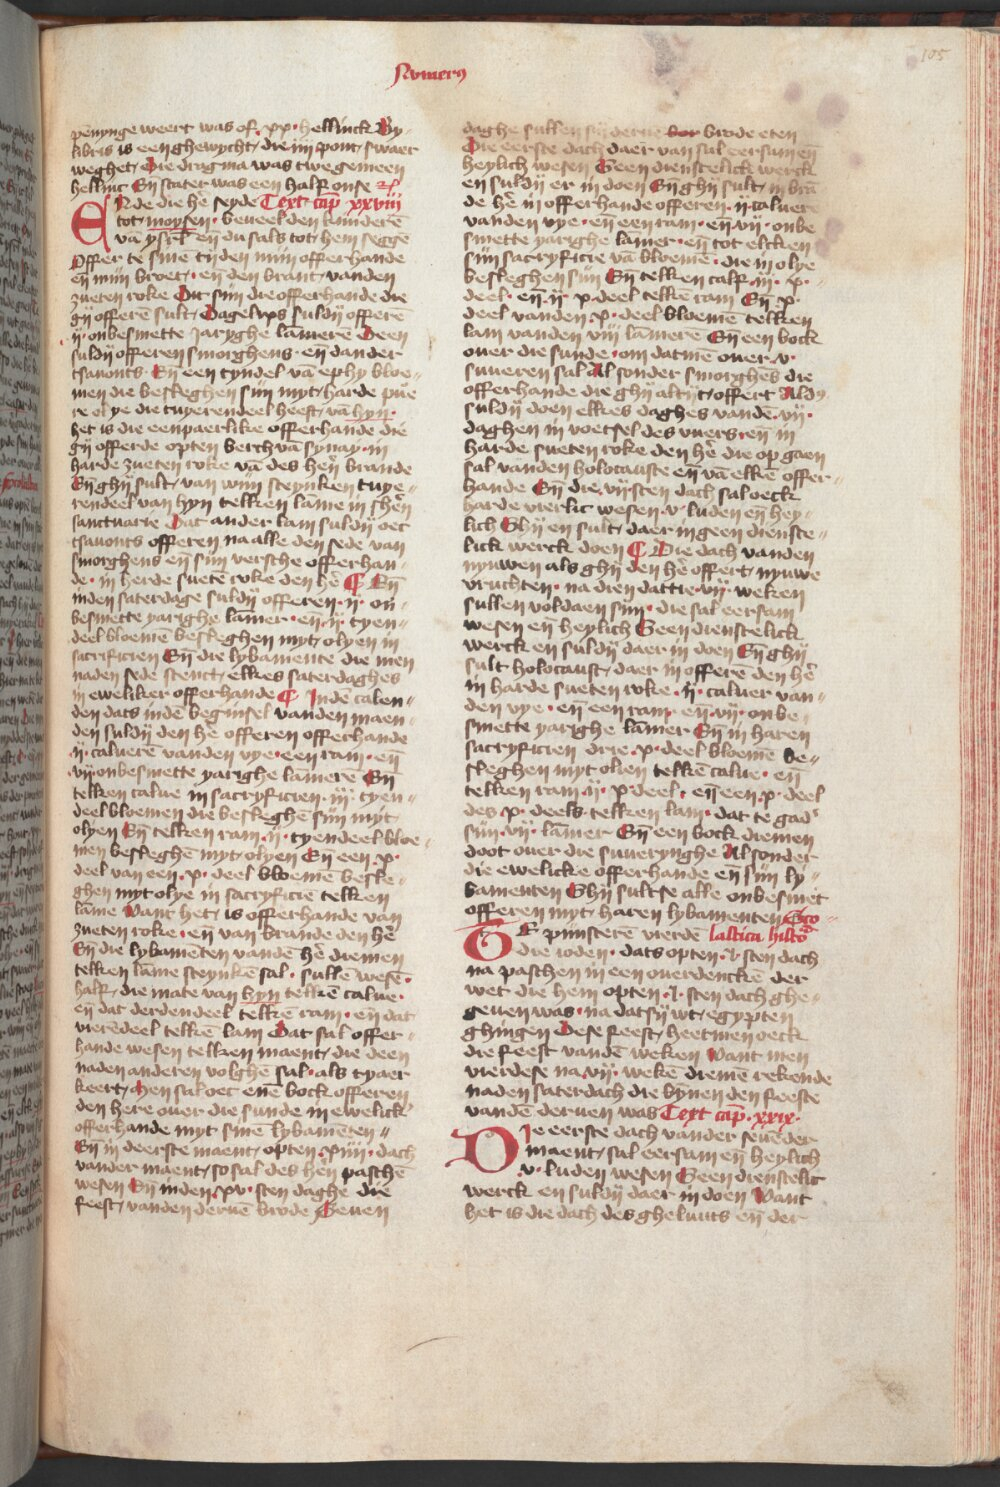 Numerꝯ
105
pēnynge weert was of · xx · hellinck Dy-
libris is een ghewycht / die iiii pont / swaer
weghet / Die dragma was twe gemeen
hellinc Eñ stater was een half onse
ENde die hē seyde Text cap̄ xxviij
tot moysen · beueel den kinderē
vā ysrl̄ eñ du sals tot hem seggē
Offer te sine tijden mijn offerhande
eñ mijn broet / eñ den brant / vanden
zueten roke Dit sijn die offerhande die
gij offerē sult / Dagelyxs suldij offerē
ij · onbesmette Jaryghe lāmerē Deen
suldij offeren smorghens · eñ dander
tsauonts · Eñ een tyendel vā ephy bloe-
men die besleghen sijn myt / harde pue
re olye die tuyerendeel heeft / vā hyn ·
het is die eenpaerlike offerhande die
gij offerde opten berch vā synay in
harde zueten roke vā des hēn brande
Eñ ghij sult / van wijn steynken tuye-
rendeel van hyn telken lāme in shēn
sanctuarie Dat ander lam suldij oec
tsauonts offeren na alle den sede van
smorghens eñ sijn versche offerhan-
de · in herde suete roke den hē ¶ Eñ
inden saterdage suldij offeren · ij · on-
besmette yarighe lāmer · en · ij · tyen-
deel bloemē besleghen myt / olyen in
sacrificien Eñ die lybamente die men
naden sede stenct / elkes saterdaghes
in eweliker offerhande ¶ Indē calen-
den dats indē beginsel vanden maen-
den suldij den hē offeren offerhande
ij · caluerē vanden vye · een ram · eñ
vij · onbesmette yarighe lāmerē Eñ
telken calue in sacryficien · iij · tyen-
deel bloemen die besleghē sijn myt
olyen Eñ telken ram · ij · tyendeel bloe-
men besleghē myt / olyen Eñ een · x ·
deel van een · x · deel bloemē besle-
ghen myt olye in sacryficiē telken
lāme Want het / is offerhande van
zueten roke · eñ van brande den hē
Eñ die lybamēten vandē hē diemen
telken lāme steynkē sal · sullē wesē ·
half / die mate van hyn telkē calue ·
eñ dat derdendeel telkē ram · eñ dat
vierēdeel telkē lam Dat sal offer-
hande wesen telken maent / die deen
naden anderen volghē sal · als tyaer
keert / Men sal oec enē bock offeren
den here ouer die sunde in ewelick
offerhande myt sinē lybamēten
Eñ in deerste maent / opten · xiiij · dach
vander maent / so sal des hēn paschē
wesen Eñ inden · xv · sten daghe die
feest / vanden deruē brode Seuen
daghe sullen sij derue brode eten
Die eerste dach daer van sal eersam eñ
heylich wesen Geen dienstelick werck
en suldij er in doen Eñ ghij sult / in brā
de hē in offerhande offeren · ij · caluerē
vanden vye · eñ een ram · eñ · vij · onbe
smette yarighe lāmer · eñ tot elcken
sijn sacryficie vā bloemē · die in olye
besleghen sijn Eñ telken calf · iij · x ·
deel · eñ · ij · x · deel telkē ram Eñ · x ·
deel vanden · x · deel bloemē telken
lam vanden vij lāmerē Eñ een bock
ouer die sunde · om datmē ouer · v ·
suueren sal Al sonder smorghēs die
offerhande die ghij altijt / offert Aldꝯ
suldij doen elkes daghes vandē · vij ·
daghen in voetsel des vuers eñ in
harde sueten roke den hē die op gaen
sal vanden holocauste eñ vā elkē offer-
hande Eñ die · vijsten dach sal oeck
harde vierlic wesen · v · luden eñ hey-
lich Ghij en sult / daer in geen dienste-
lick werck doen ¶ Die dach vanden
nyuwen als ghij den hē offert / nyuwe
vruchten · na dien dattie · vij · weken
sullen voldaen sijn · die sal eersam
wesen eñ heylich Geen dienstelick
werck en suldij daer in doen Eñ ghij
sult holocaust / daer in offerē den hē
in harde sueten roke · ij · caluer van-
den vye · eñ een ram · eñ · vij · onbe-
smette yarighe lāmer Eñ in haren
sacryficien drie · x · deel bloemē be-
sleghen myt olien telkē calue · eñ
telken ram · ij · x · deel · eñ een · x · deel
des · x · deels telken lam · dat te gad'
sijn · vij · lāmer Eñ een bock diemen
doot ouer die suuerynghe Al sonder
die ewelicke offerhande eñ sijn ly-
bamenten Ghij sultse alle onbesmet
offeren myt / haren lybamenten Sco
DE pijnsterē vierdē lastica histo
die ioden · dats opten · l · sten dach
na paschen in een ouerdenckē der
wet die hem opten · l · sten dach ghe-
geuen was · na datsij wt / egypten
ghingen Dese feest / heetmen oeck
die feest vandē weken Want men
vierdese na · vij · wekē diemē rekende
naden saterdach die bynen den feeste
vandē deruen was Text cap̄ · xxix ·
Die eerste dach vander seuēder
maent / sal eersam eñ heylich
v · luden wesen Geen dienstelic
werck en suldij daer in doen Want
het is die dach des gheluuts eñ der